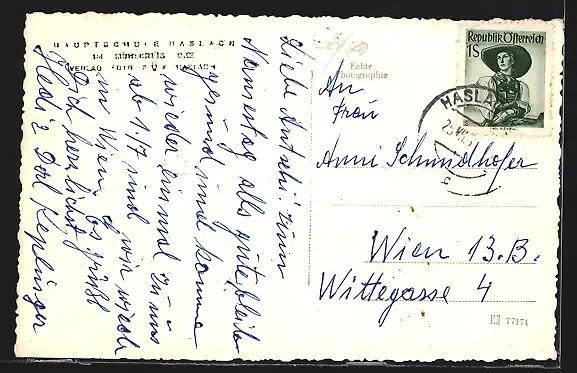 HAUPTSCHULE HASLACH
IM MÜHLKREIS O.Ö.
VERLAG FOTO FUX HASLACH
Liebe Antschi! Zum
Namenstag alls gute bleib
gesund und komme
wieder einmal zu uns
ab 1./7 sind wir wieder
in Wien. Es grüßt
Dich herzlichst
Hedi & Dorl Keplinger
Echte
Photographie
An
Frau
Anni Schmidhofer
Wien 13. B.
Wittegasse 4
Republik Österreich
1S
HASLA
77174